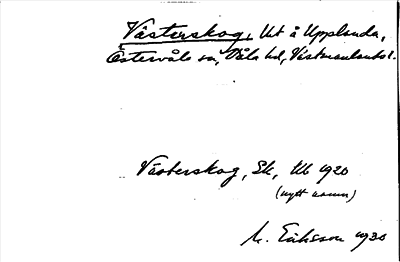 Västerskog, Ut å Upplanda,
Östervåla sn, Våla hd, Västmanlands l.
Västerskog, Sk, Ub 1920
(nytt namn)
M. Eriksson 1930